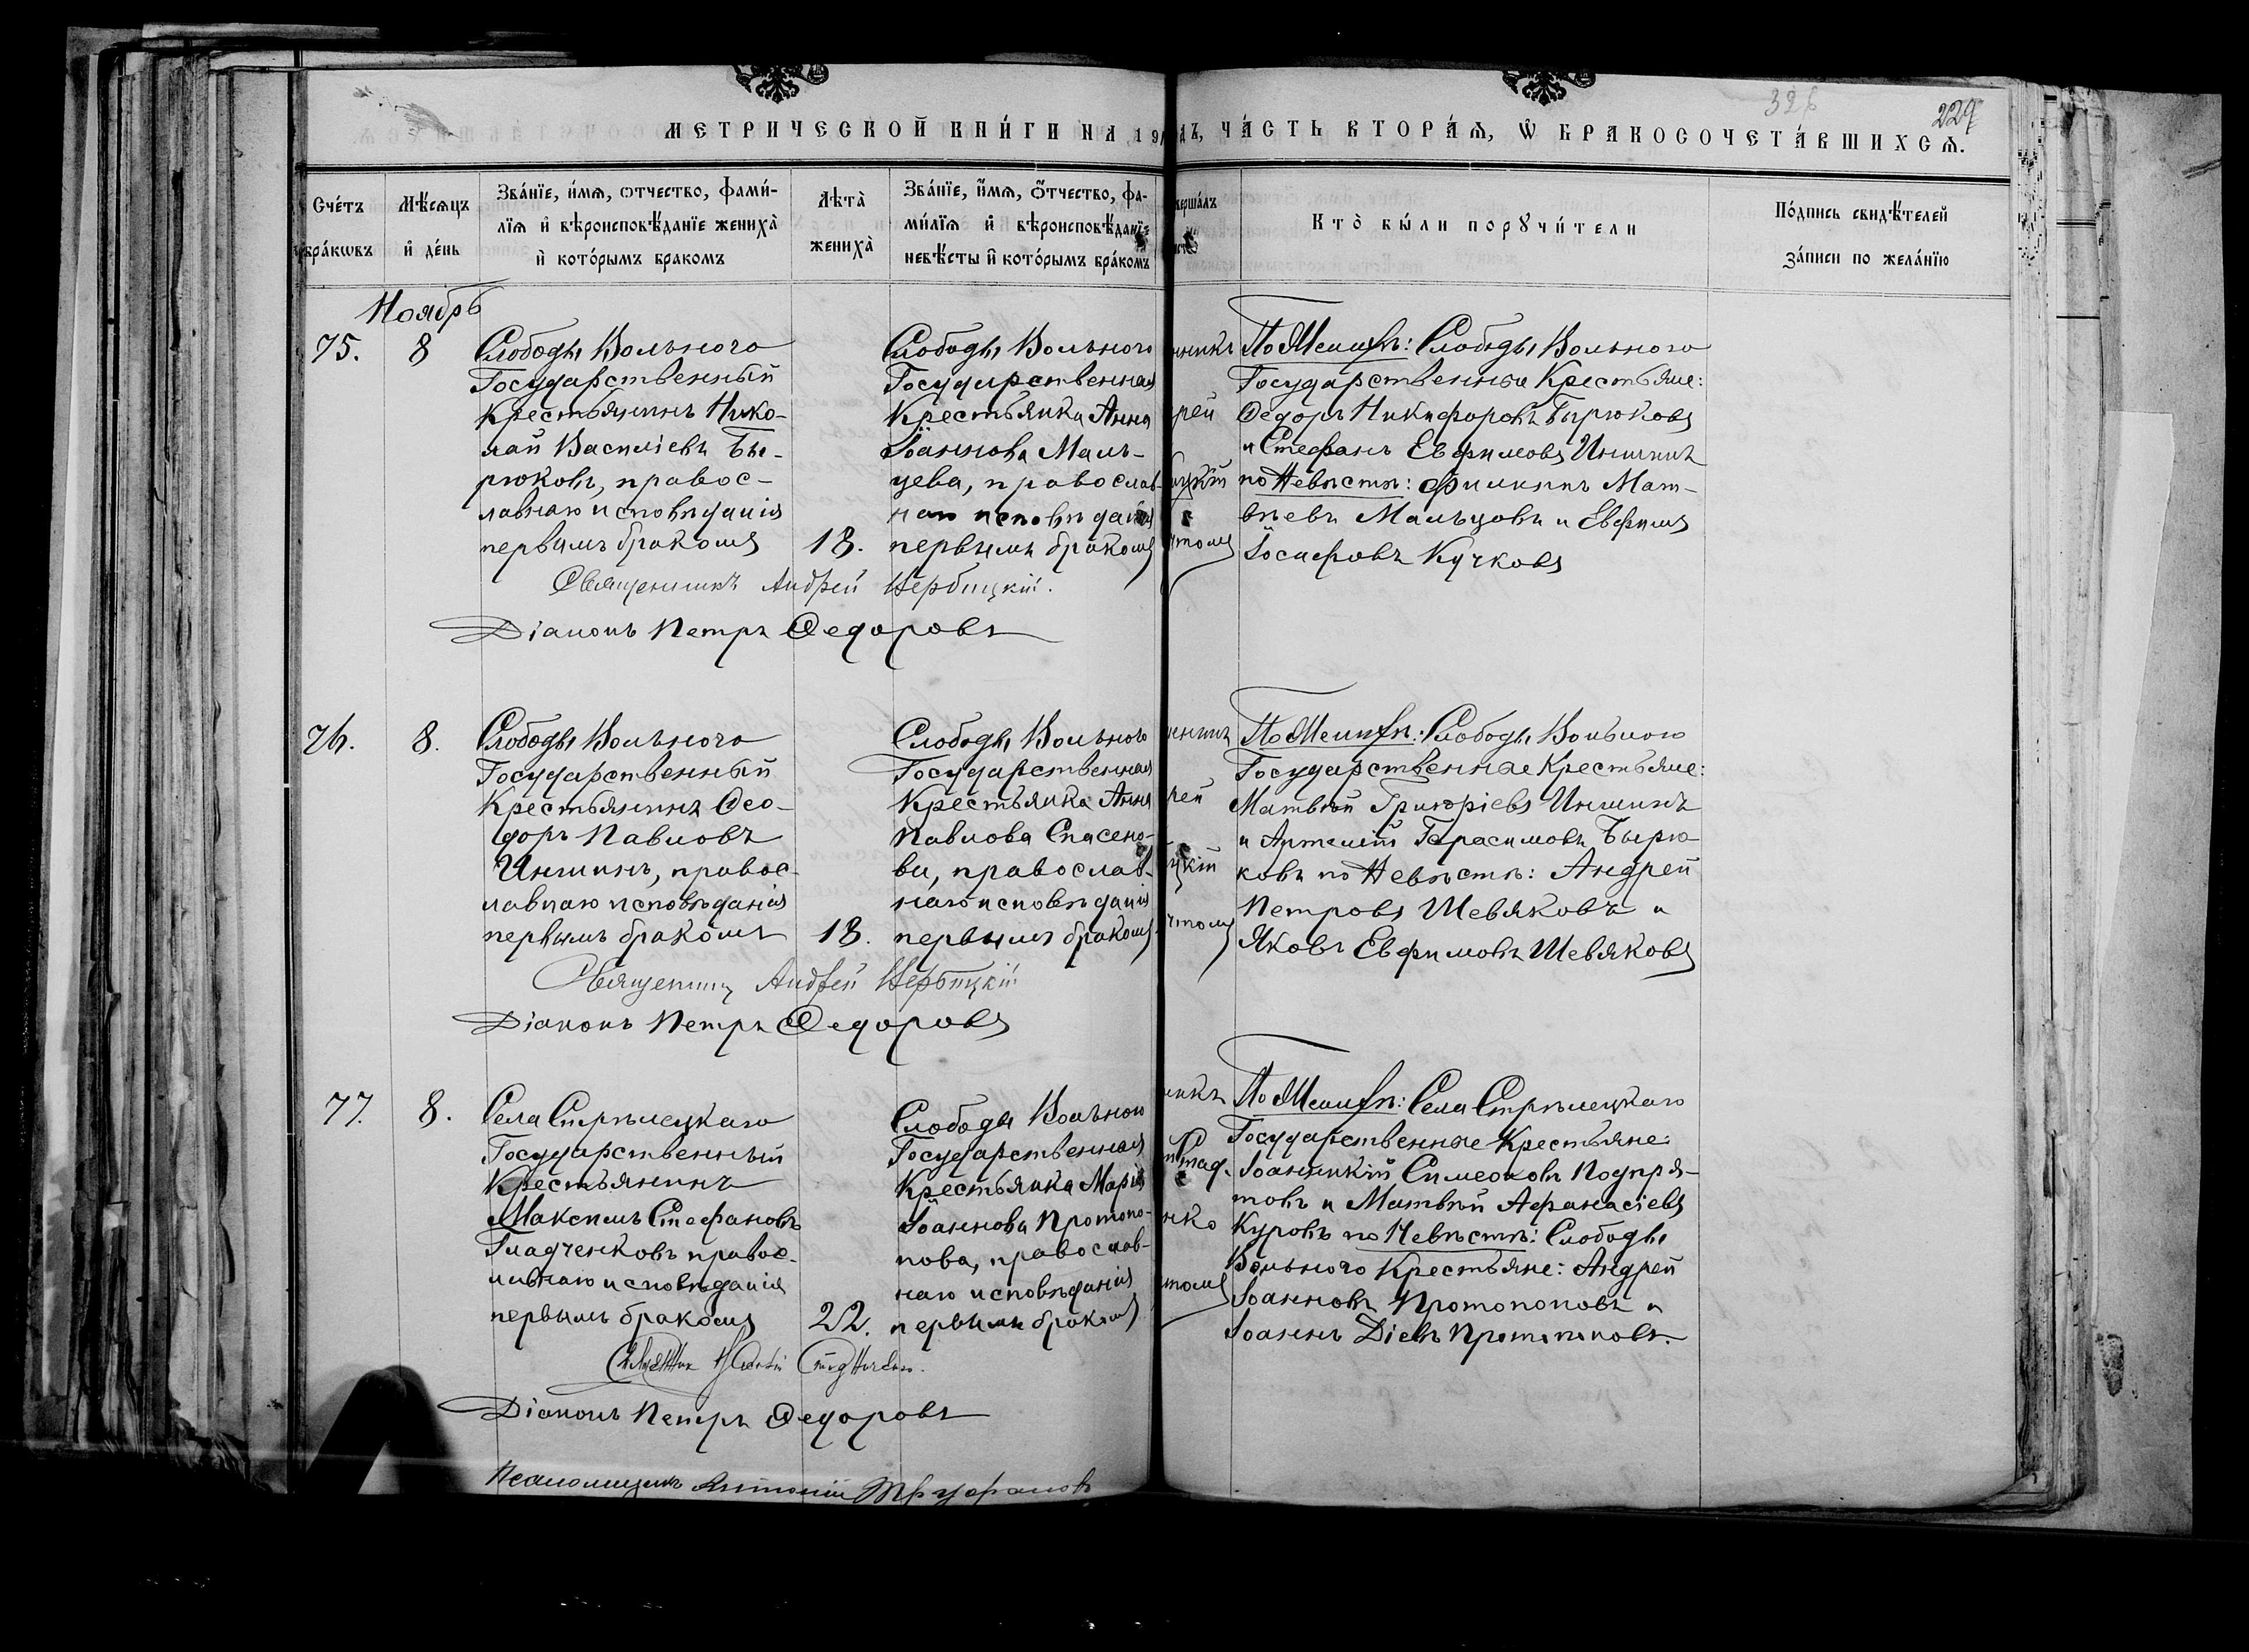 326
229
МЕТРИЧЕСКОЙ КНИ́ГИ НА 19
ДЪ, ЧА́СТЬ ВТОРА́Ѧ, Ѿ БРАКОСОЧЕТА́ВШИХСѦ.
Сче́тъ
бра́кѡвъ
Мѣ́сѧцъ
и҆ де́нь
Зва́нїе, и҆́мѧ, ѻтчество, фами́-
лїѧ и҆ вѣроисповѣ́данїе жениха̀
и҆ кото́рымъ бракомъ
Лѣта̀
жениха̀
Зва́нїе, и҆́мѧ, ѻ҆́тчество, фа-
ми́лїѧ и҆ вѣроисповѣ́данїе
невѣ́сты и҆ кото́рымъ бра́комъ
верша́лъ
Кто̀ бы́ли порꙋчи́тели
По́дпись свидѣ́телей
за́писи по жела́нїю
Ноябрь
75.
8
Слободы Вольного
Государственный
Крестьянинъ Нико-
лай Василіевъ Бы-
рюковъ, правос-
лавнаго исповѣданія
первымъ бракомъ
18.
Слободы Вольного
Государственная
Крестьянка Анна
Іоаннова Маль-
цева, православ-
наго исповѣданія
первымъ бракомъ
рей
цкій
По Женихѣ: Слободы Вольного
Государственные Крестьяне:
Ѳедоръ Никифоровъ Бырюковъ
и Стефанъ Евфимовъ Иншинъ
по Невѣстѣ: Филиппъ Мат-
вѣевъ Мальцовъ и Евфимъ
Іосифовъ Кучковъ
Священникъ Андрей Вербицкій.
Діаконъ Петръ Ѳедоровъ
76.
8.
Слободы Вольного
Государственный
Крестьянинъ Ѳео-
доръ Павловъ
Иншинъ, правос-
лавнаго исповѣданія
первымъ бракомъ
18.
Слободы Вольного
Государственная
Крестьянка Анна
Павлова Спасено-
ва, православ-
наго исповѣданія
первымъ бракомъ
рей
цкій
По Женихѣ: Слободы Вольного
Государственные Крестьяне:
Матвѣй Григоріевъ Иншинъ
и Артемій Герасимовъ Бырю-
ковъ по Невѣстѣ: Андрей
Петровъ Шевяковъ и
Яковъ Евфимовъ Шевяковъ
Священникъ Андрей Вербицкій
Діаконъ Петръ Ѳедоровъ
77.
8.
Села Стрѣлецкаго
Государственный
Крестьянинъ
Максимъ Стефановъ
Гладченковъ правос-
лавнаго исповѣданія
первымъ бракомъ
22.
Слободы Вольного
Государственная
Крестьянка Марія
Іоаннова Протопо-
пова, православ-
наго исповѣданія
первымъ бракомъ
нко
По Женихѣ: Села Стрѣлецкаго
Государственные Крестьяне:
Іоанникій Симеоновъ Подпря-
товъ и Матвѣй Афанасіевъ
Куровъ по Невѣстѣ: Слободы
Вольного Крестьяне: Андрей
Іоанновъ Протопоповъ и
Іоаннъ Діевъ Протопоповъ.
Діаконъ Петръ Ѳедоровъ
Псаломщикъ Антоній Труфановъ